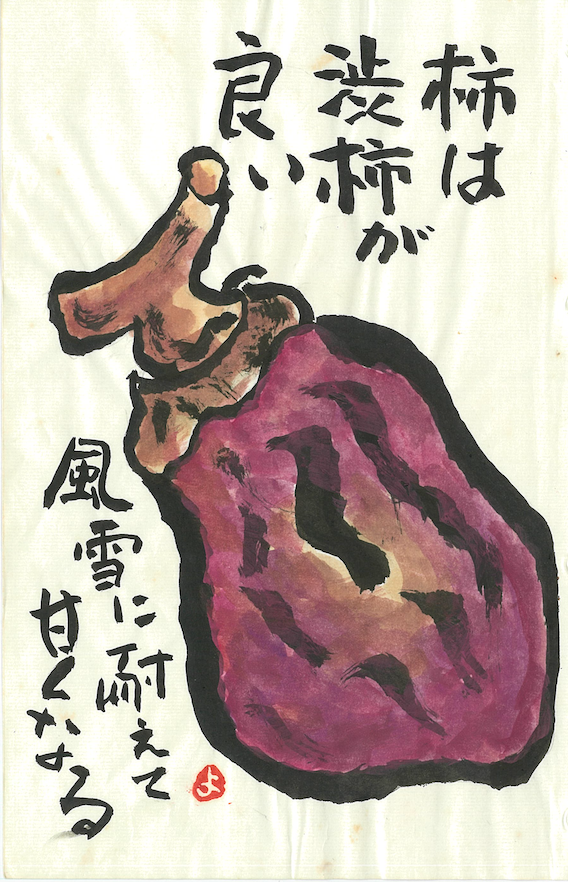 柿は
渋柿が
良い
風雪に耐えて
甘くなる
よ